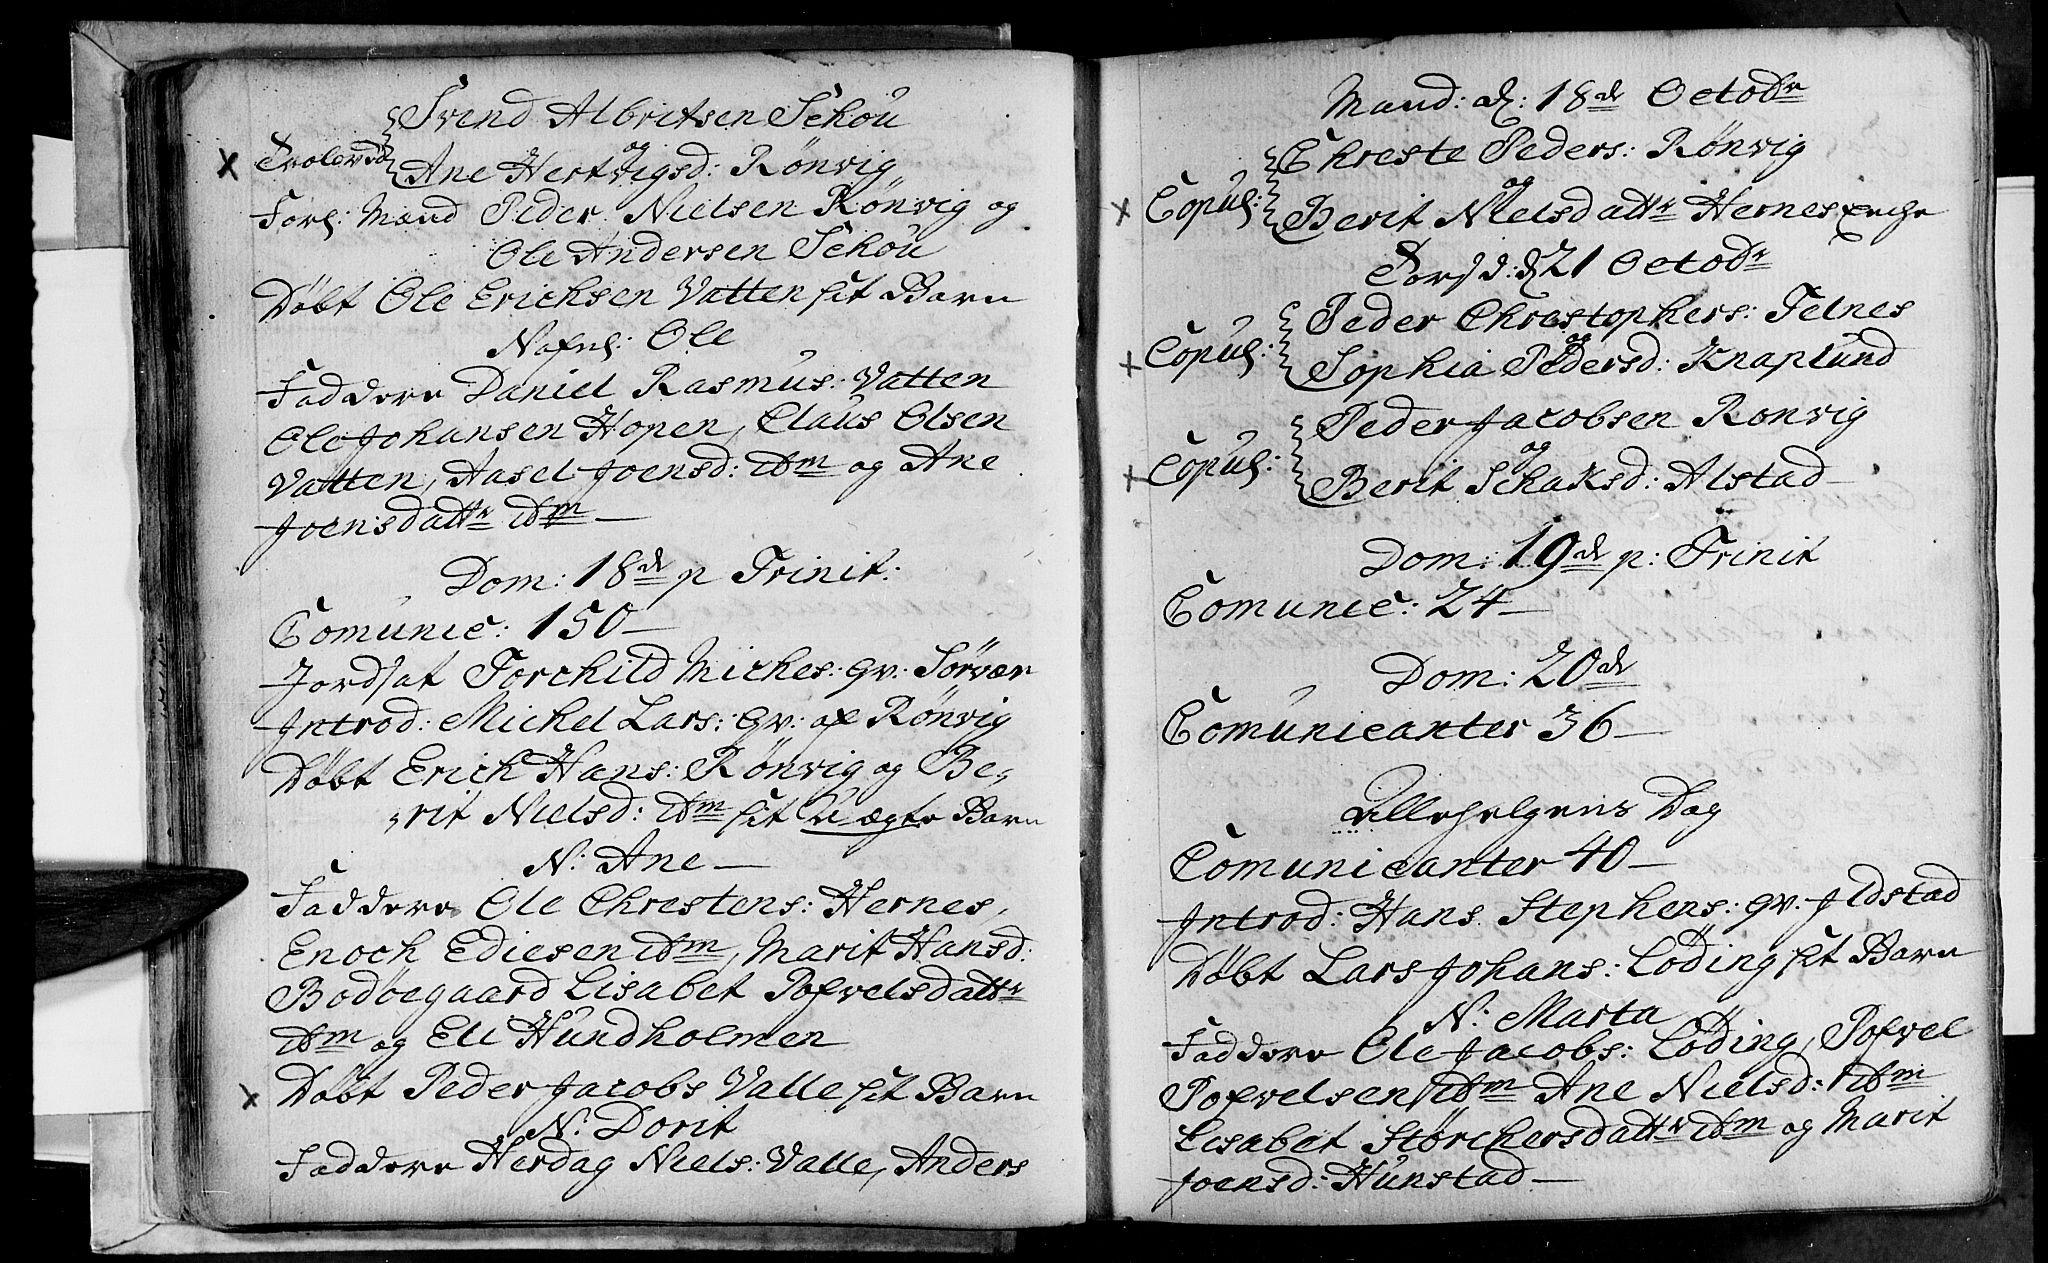 Svend Albritsen Schou
Trolovede og
Ane Hertvigsd: Rønvig
Forl: Mænd Peder Nielsen Rønvig og
Ole Andersen Schou
Døbt Ole Erichsen Vatten sit Barn
Nafnl: Ole
Faddere Daniel Rasmus: Vatten
Ole Johansen Hopen, Claus Olsen
Vatten, Aasel Joensd: ibm og Ane
Joensdattr ibm —
Dom: 18de p Trinit:
Comunic: 150 —
Jordsat Torchild Miches: qv: Sørvær
Introd: Michel Lars: qv: af Rønvig
Døbt Erich Hans: Rønvig og Be-
rit Nielsd: ibm sit Uægte Barn
N: Ane —
Faddere Ole Chrestens: Hernes,
Enoch Ediesen ibm, Marit Hansd:
Bodøegaard Lisabet Pofvelsdattr
ibm og Eli Hundholmen
Døbt Peder Jacobs Valle sit Barn
N: Dorit
Faddere Herdag Niels: Valle, Anders
Mand: d: 18de Octobr
Chreste Peders: Rønvig
Copul: og
Berit Nielsdattr Hernes
Torsd: d 21 Octobr
Peder Chrestophers: Felnes
Copul: og
Sophia Pedersd: Knaplund
Peder Jacobsen Rønvig
Copul: og
Berit Schaksd: Alstad —
Dom: 19de p: Trinit
Comunic: 24 —
Dom: 20de
Comunicanter 36 —
Allehelgens Dag
Comunicanter 40 —
Introd: Hans Stephens: qv: Ildstad
Døbt Lars Johans: Løding sit Barn
N: Marta
Faddere Ole Jacobs: Løding, Pofvel
Pofvelsen ibm Ane Nielsd: ibm
Lisabet Størchersdattr ibm og Marit
Joensd: Hunstad —